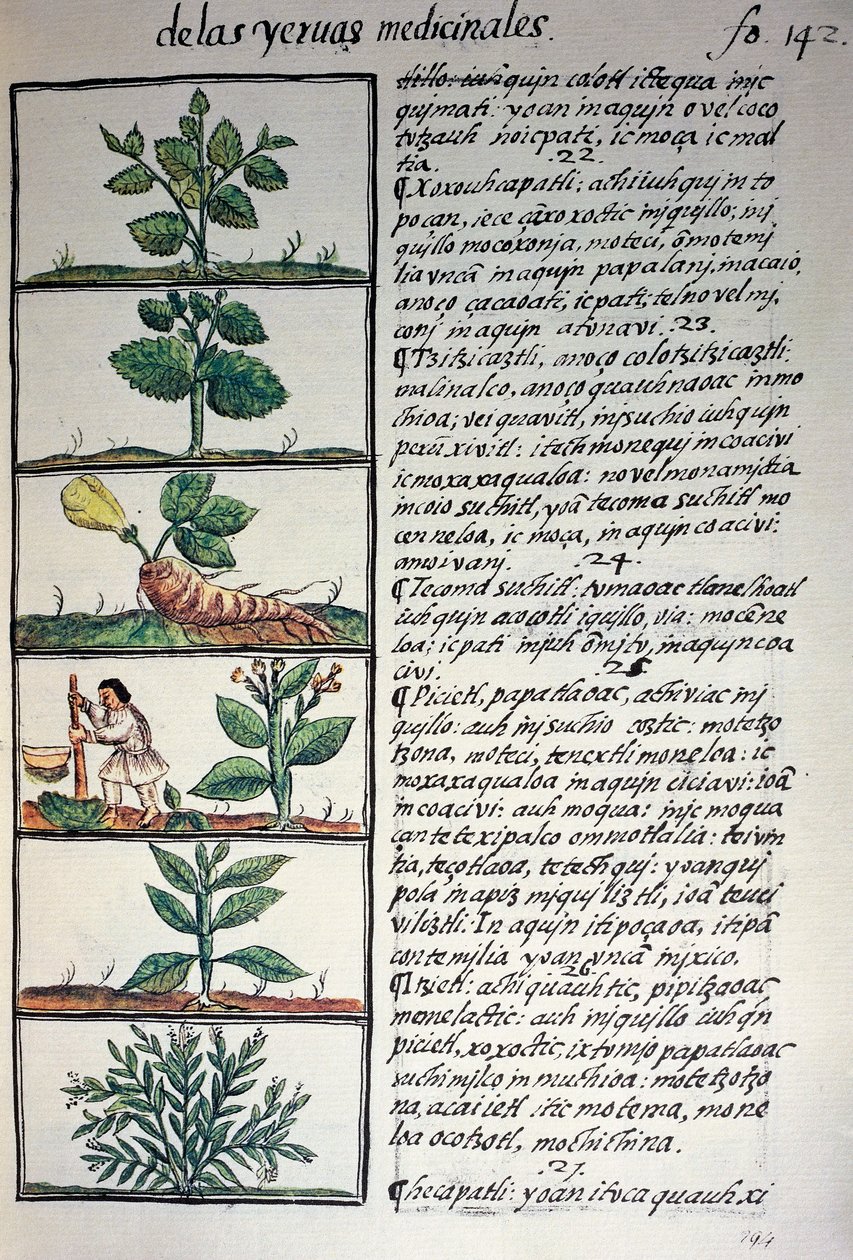 delas yeruas medicinales.
fo. 142.
tillo: iuh qujn colotl ictequa injc
qujmati: yoan in aqujn o vel coco
tvtzauh noicpati, ic moça ic mal
tia. .22.
¶Xoxouhcapatli: achi iuhquj in to
poçan, iece çã xoxoctic in jqujllo; inj
qujllo mocoxonja, moteci, õmotemj
lia vncã in aqujn papalanj, macaio,
anoço çacaoati, ic pati; tel no vel mj,
conj in aqujn atonavi. .23.
¶Tzitzicaztli, anoço colotzitzicaztli:
malinalco, anoço quauhnaoac in mo
chioa; vei quavitl, injsuchio iuhqujn
perũ xivitl: itech monequj in coacivi
ic moxaxaqualoa: no vel monamjctia
in coio suchitl, yoã tecoma suchitl mo
cenneloa, ic moça, in aqujn coacivi:
anoivanj. .24.
¶Tecoma suchitl: tvmaoac tlanelhoatl
iuhqujn acocotli iqujllo, via: mocẽne
loa; ic pati injuh õmjtv, in aqujn coa
civi. .25.
¶Picietl, papatlaoac, achi viac inj
qujllo: auh injsuchio coztic: motetzo
tzona, moteci, tenextli moneloa: ic
moxaxaqualoa in aqujn ciciavi: ioã
in coacivi: auh moqua: injc moqua
can te texipalco ommotlalia: teivin
tia, teçotlaoa, tetech quj: yvan quj
pola in apiz mjqujliztli, ioã teuci
viliztli. In aqujn itipoçaoa, itipã
contemjlia yoan vncã injxico.
.26.
¶Itzietl: achi quauhtic, pipitzaoac
memelactic: auh injqujllo iuhqn
picietl, xoxoctic, ixtvmjo papatlaoac
suchimjlco in muchioa: motetzotzo
na, acaiietl itic motema, mone
loa ocotzotl, mochichina.
.27.
¶hecapatli: yoan itvca quauh xi
294